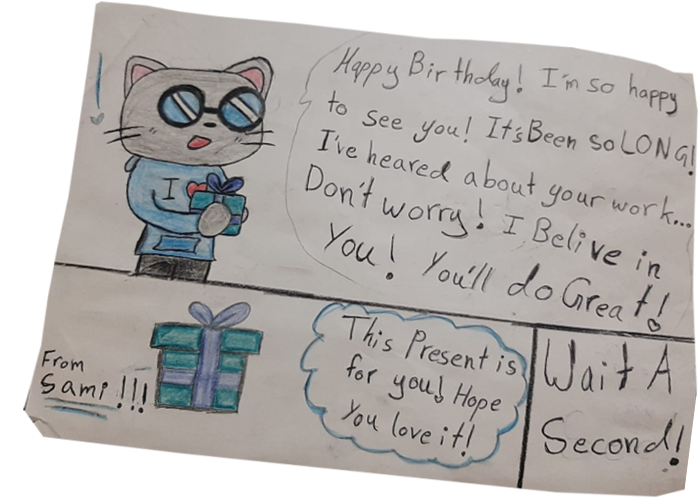 Happy Birthday! I'm so happy
to see you! It's Been so LONG!
I've heared about your work...
Don't worry! I Belive in
You! You'll do Great!
I
From
Sami!!!
This Present is
for you! Hope
You love it!
Wait A
Second!